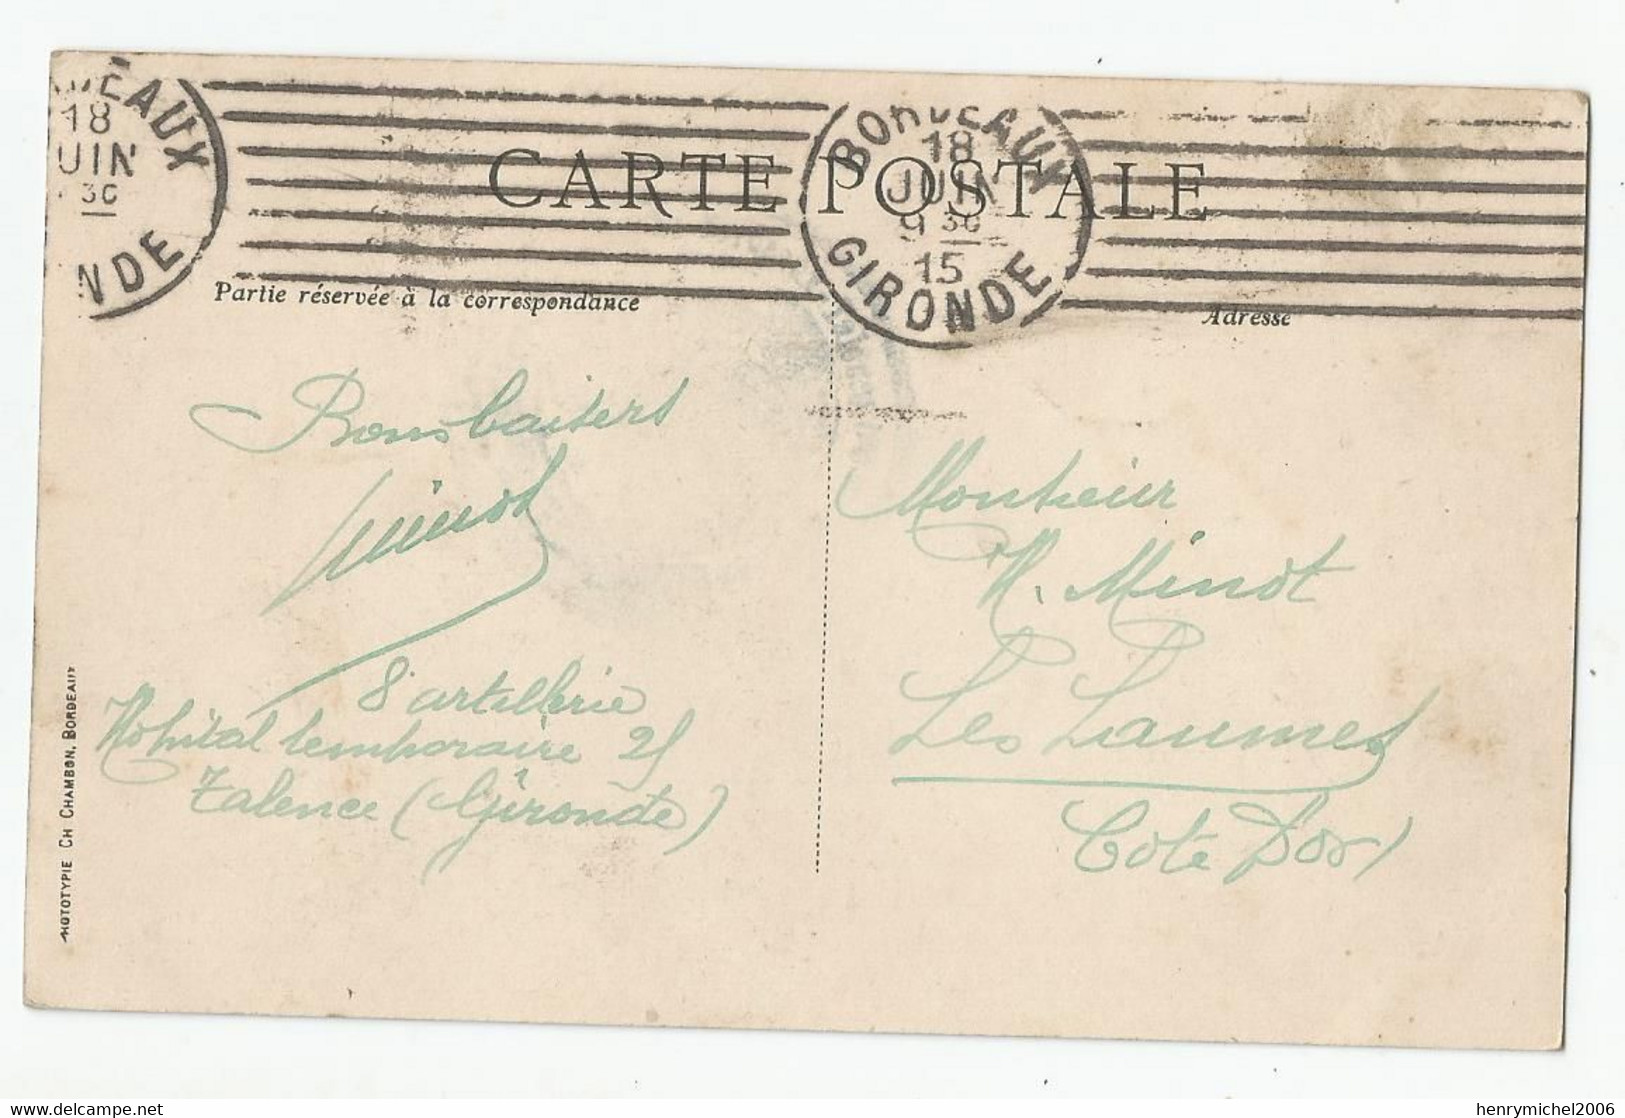 DEAUX
18
UIN
30
NDE
BORDEAUX
18
JUIN
9 30
15
GIRONDE
CARTE POSTALE
Partie réservée à la correspondance
Adresse
Bons baisers
Minot
8e artillerie
Hôpital temporaire 25
Talence (Gironde)
Monsieur
H. Minot
Les Laumes
Côte D'or
PHOTOTYPIE CH CHAMBON, BORDEAUX
henrymichel2006